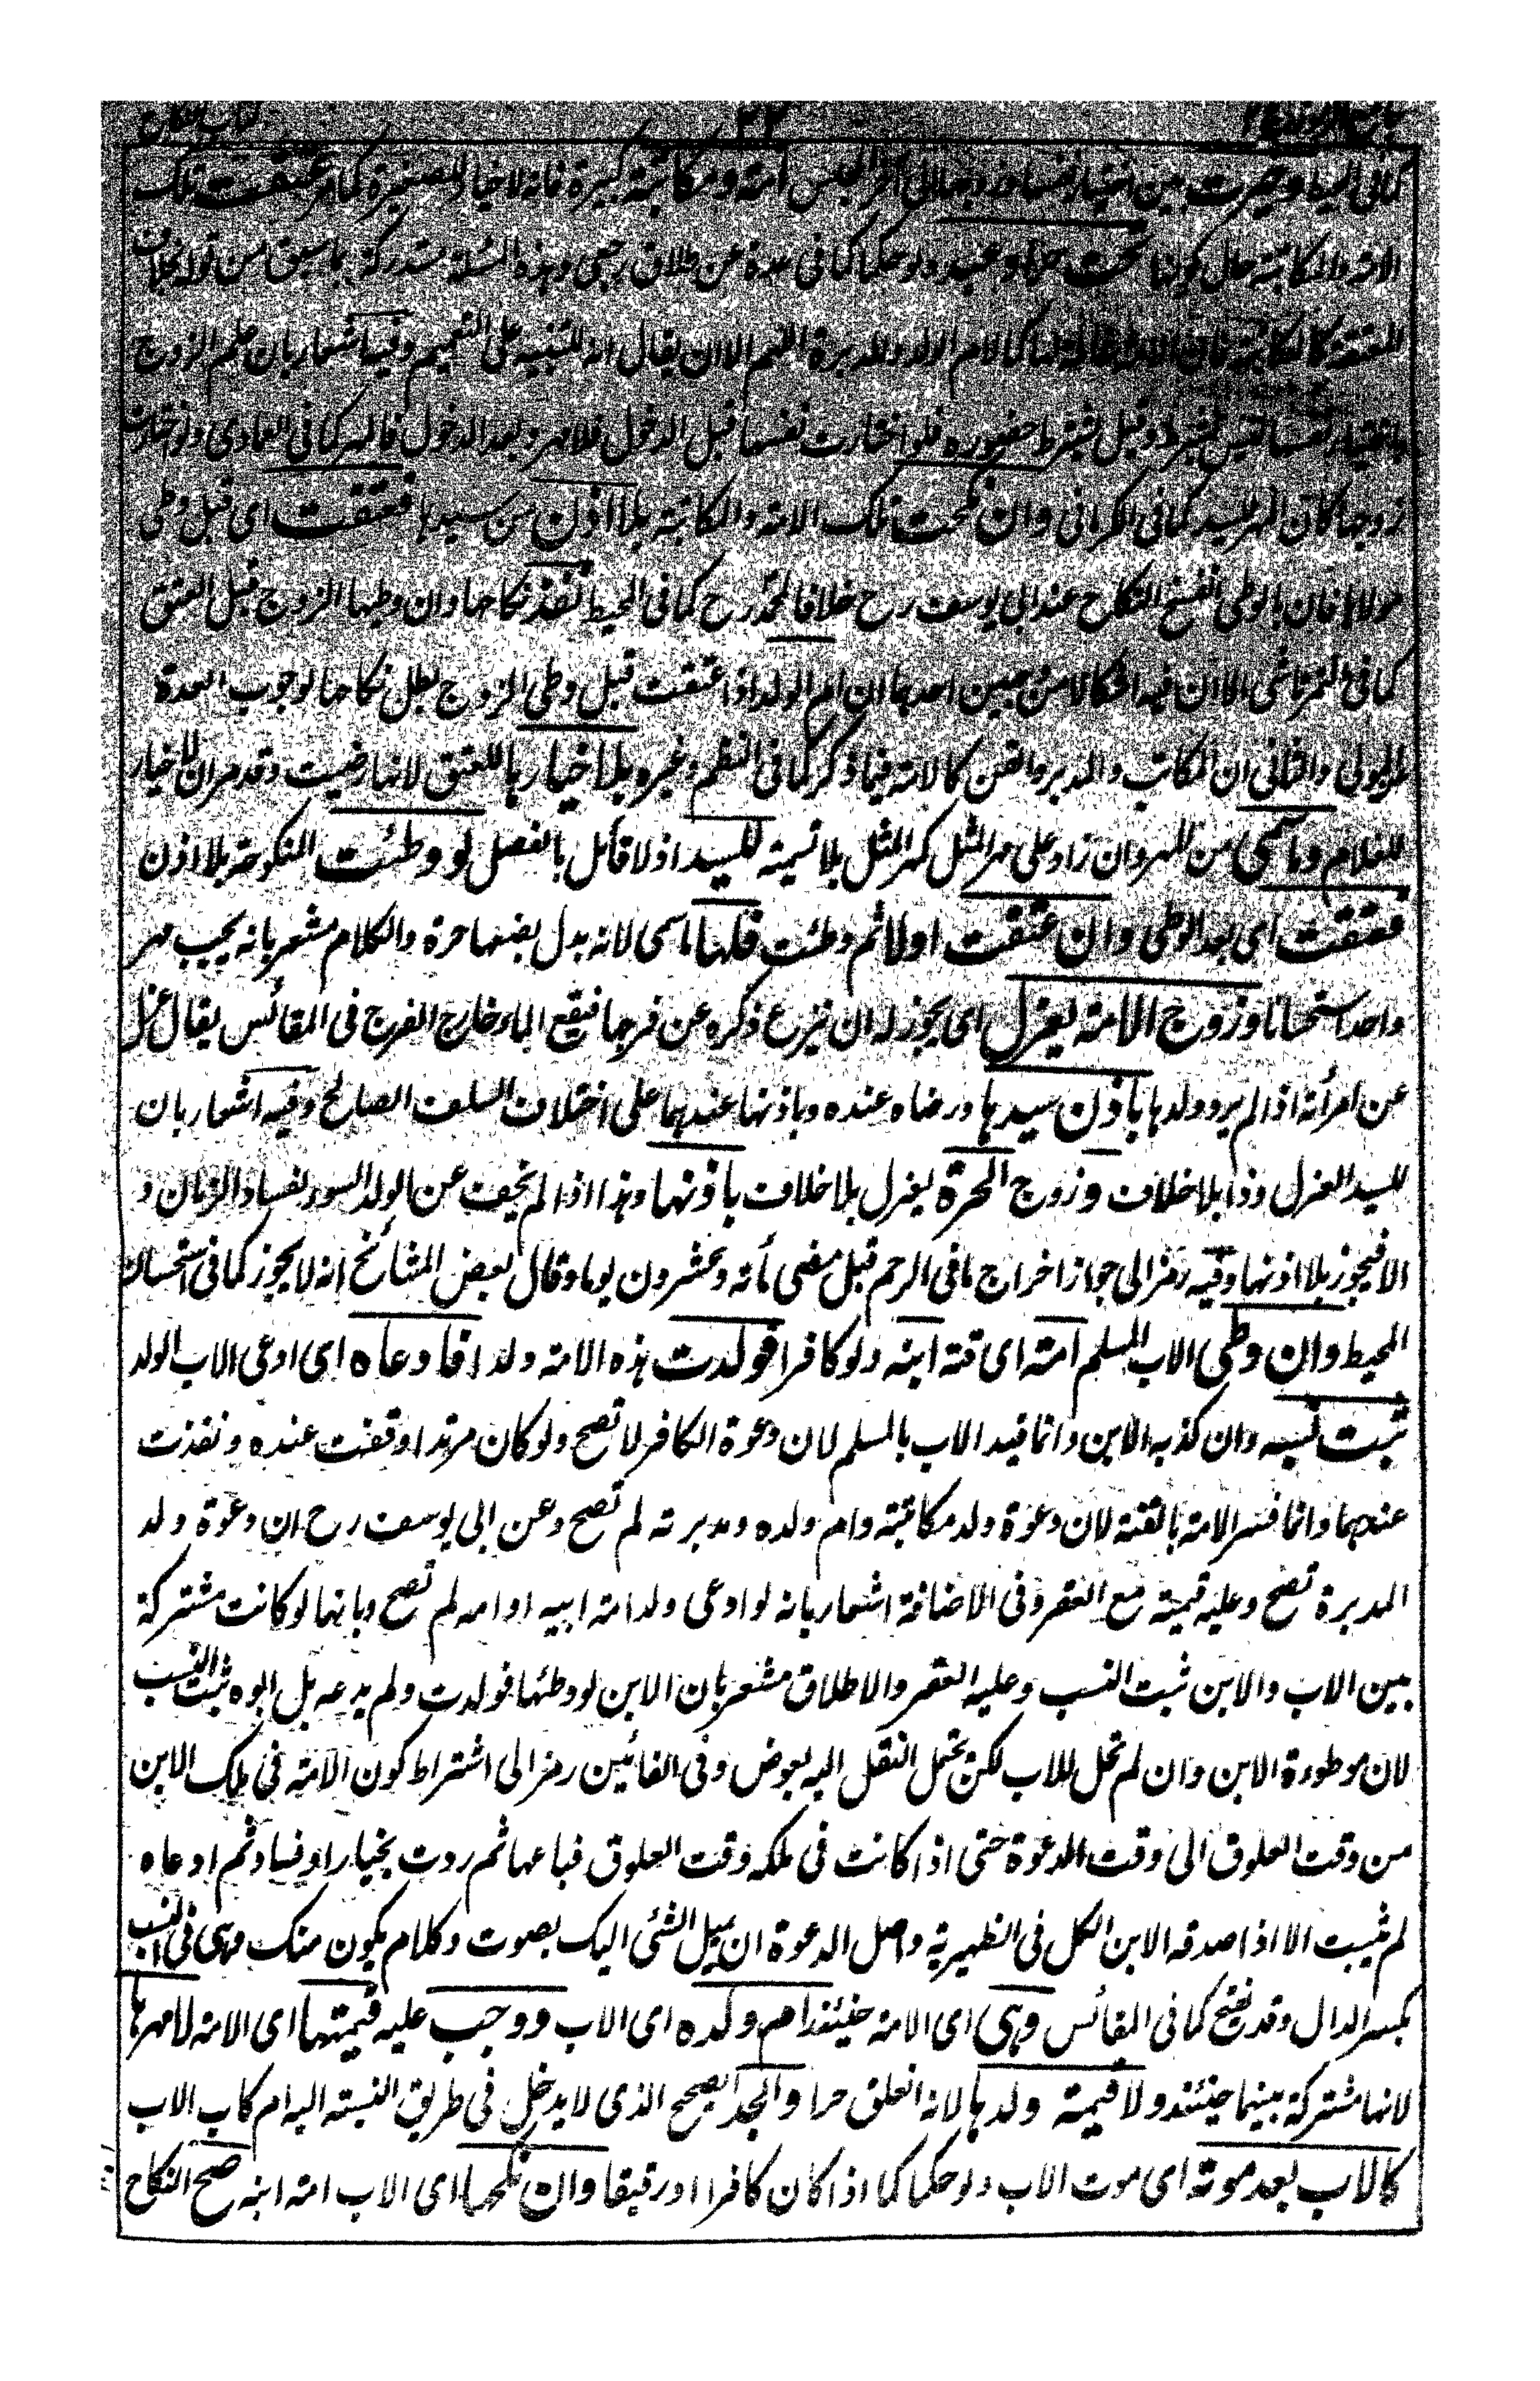 كتاب النكاح
كما فى وخيرت بين اختيار نفسها وزوجها الى آخر المجلس امة ومكاتبة كبيرة فانه لا خيار للصغيرة كما مر عتقت تلك
الامة والمكاتبة حال كونها تحت حر او عبد ولو حكما كما فى عدة عن طلاق رجعى وهذه المسئلة مستدركة بما سبق من قوله بخلاف
المعتقة كالمكاتبة فان الامة كام الولد والمدبرة اللهم الا ان يقال انه للتنبيه على التعميم وفيه اشعار بان علم الزوج
باختيار نفسها ليس بشرط وقيل يشترط حضوره فلو اختارت نفسها قبل الدخول فلا مهر وبعد الدخول فالمهر كما فى العمادى ولو اختارت
زوجها كان المهر للسيد كما فى الكرمانى وان نكحت تلك الامة والمكاتبة بلا اذن من سيدها فعتقت اى قبل وطى
مولاها فان بالوطى انفسخ النكاح عند ابى يوسف رح خلافا لمحمد رح كما فى المحيط نفذ نكاحها وان وطيها الزوج قبل العتق
كما فى التمرتاشى الا ان فيه اشكالا من وجهين احدهما ان ام الولد اذا عتقت قبل وطى الزوج بطل نكاحها لوجوب العدة
للمولى والثانى ان المكاتب والمدبر والقن كالامة فيما ذكر كما فى النظم وغيره بلا خيار لها للعتق لانها رضيت وقد مر ان لا خيار
للغلام وما سمى من المهر وان زاد على مهر المثل كمهر المثل بلا تسمية للسيد اذ لا قائل بالفصل لو وطئت المنكوحة بلا اذن
فعتقت اى بعد الوطى وان عتقت اولا ثم وطئت فلها ما سمى لانه بدل بضعها حرة والكلام مشعر بانه يجب مهر
واحد استحسانا وزوج الامة يعزل اى يجوز له ان ينزع ذكره عن فرجها فيقع الماء خارج الفرج فى المقائس يقال عزل
عن امرأته اذا لم يرد ولدها باذن سيدها ورضاه عنده وباذنها عندهما على اختلاف السلف الصالح وفيه اشعار بان
للسيد العزل وذا بلا خلاف وزوج الحرة يعزل بلا خلاف باذنها وهذا اذا لم يخف عن الولد السوء لفساد الزمان و
الا فيجوز بلا اذنها وفيه رمز الى جواز اخراج ما فى الرحم قبل مضى مأته وعشرون يوما وقال بعض المشائخ انه لا يجوز كما فى استحسان
المحيط وان وطى الاب المسلم امة اى قنة ابنه ولو كافرا فولدت هذه الامة ولدا فادعاه اى ادعى الاب الولد
ثبت نسبه وان كذبه الابن وانما قيد الاب بالمسلم لان دعوة الكافر لا تصح ولو كان مرتدا وقفت عنده ونفذت
عندهما وانما فسر الامة بالقنة لان دعوة ولد مكاتبته وام ولده ومدبرته لم تصح وعن ابى يوسف رح ان دعوة ولد
المدبرة تصح وعليه قيمته مع العقر وفى الاضافة اشعار بانه لو ادعى ولد امة ابيه او امه لم تصح وبانها لو كانت مشتركة
بين الاب والابن ثبت النسب وعليه العقر والاطلاق مشعر بان الابن لو وطئها فولدت ولم يدعه بل ابوه ثبت النسب
لان موطوءة الابن وان لم تحل للاب لكن يحتمل النقل اليه بعوض وفى الفائين رمز الى اشتراط كون الامة فى ملك الابن
من وقت العلوق الى وقت الدعوة حتى اذا كانت فى ملكه وقت العلوق فباعها ثم ردت بخيار او فساد ثم ادعاه
لم يثبت الا اذا صدقه الابن الكل فى الظهيرية واصل الدعوة ان يميل الشئى اليك بصوت وكلام يكون منك وهى فى النسب
بكسر الدال وقد تفتح كما فى المقائس وهى اى الامة حينئذ ام ولده اى الاب ووجب عليه قيمتها اى الامة لا مهرها
لانها مشتركة بينهما حينئذ ولا قيمة ولدها لانه انعلق حرا والجد الصحيح الذى لا يدخل فى طريق النسبة اليه ام كاب الاب
كالاب بعد موته اى موت الاب ولو حكما كما اذا كان كافرا او رقيقا وان نكحها اى الاب امة ابنه صح النكاح